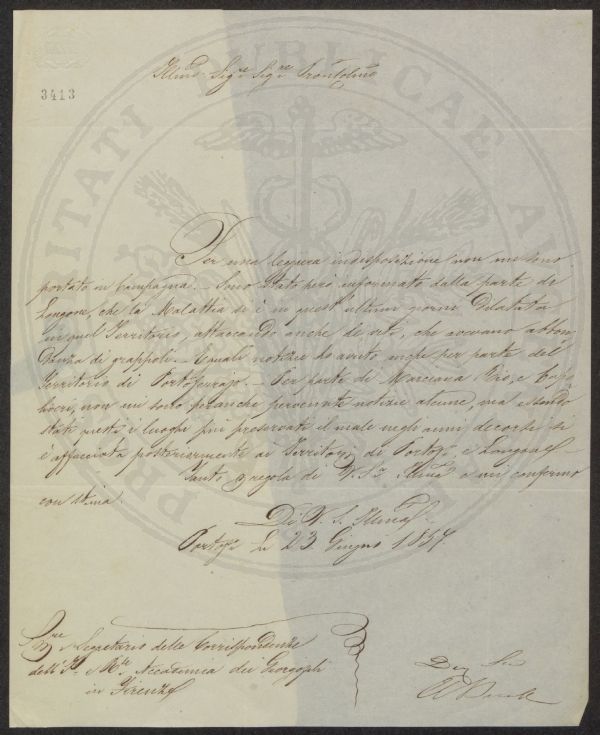 3413
Per una leggiera indisposizione non mi sono
portato in Campagna. – Sono stato però informato dalla parte di
Longone, che la Malattia si è in quest'ultimi giorni dilatata
in quel Territorio, attaccando anche le viti, che avevano abbon,
danza di grappoli. – Eguali notizie ho avuto anche per parte del
Territorio di Portoferrajo. – Per parte di Marciana Rio, e Capo
liveri, non mi sono peranche pervenute notizie alcune, ma essendo
stati questi i luoghi più preservati il male negli anni decorsi si
è affacciata posteriormente ai Territorj di Portofo, e Longone –
Tanto a regola di V. S. Illma e mi confermo
con stima.
Di V. S. Illma
Portofo Li 23 Giugno 1854
Segretario delle Corrispondenze
dell' I. e Rle Accademia dei Georgofili
in Firenze
PUBLICAE